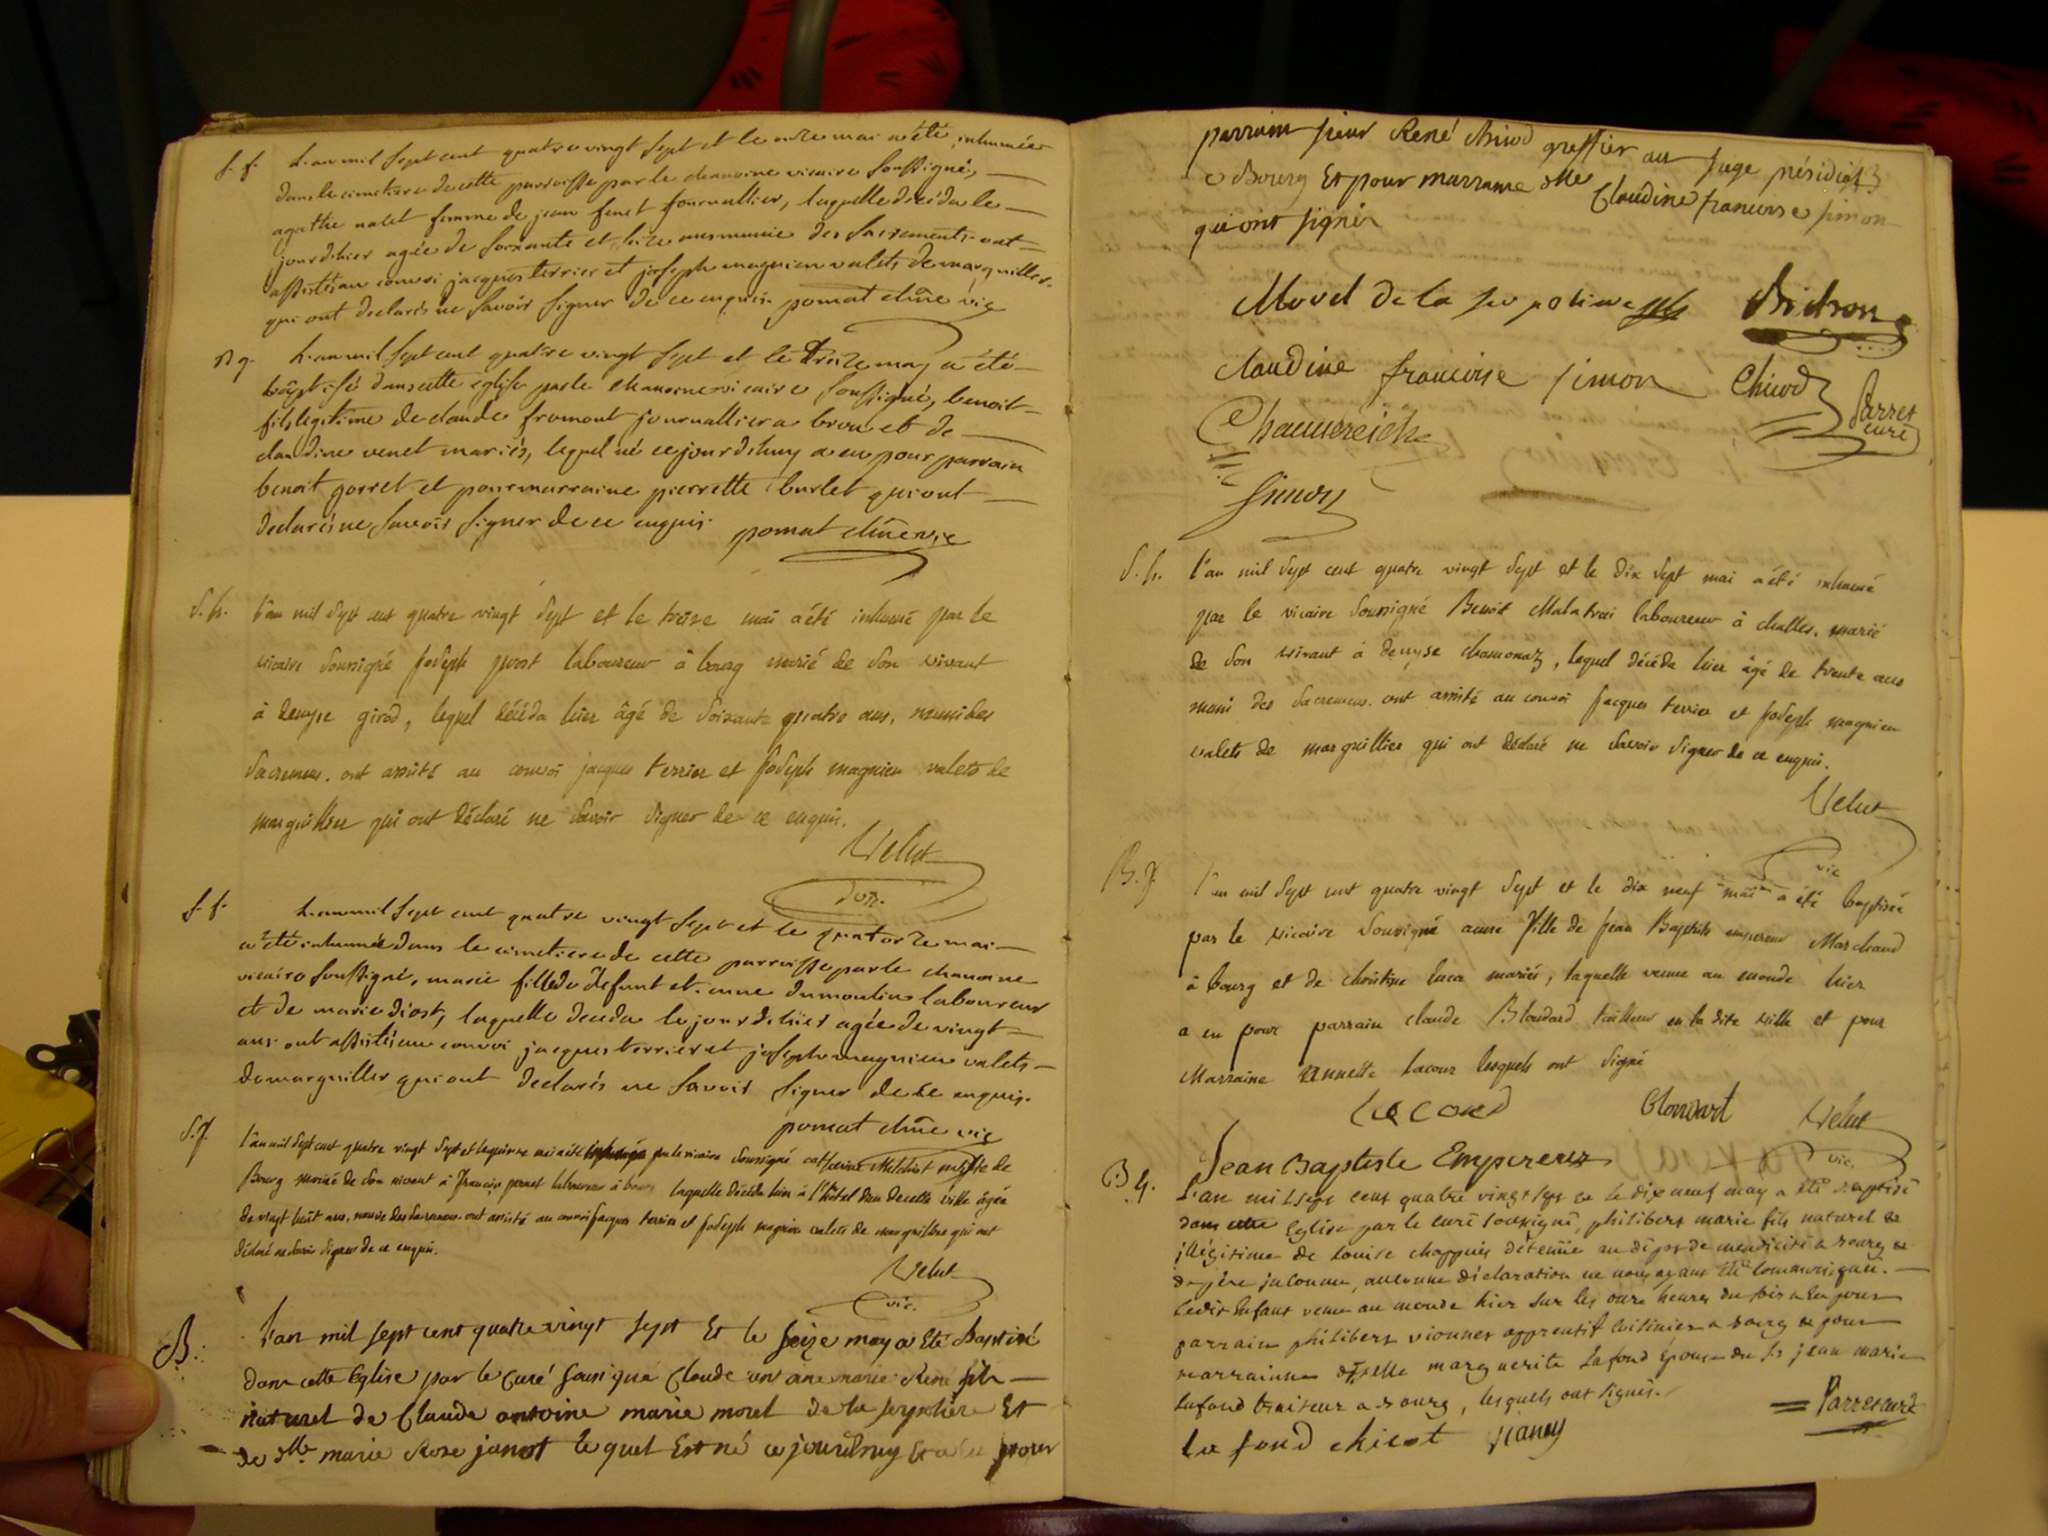 S. f. L'an mil sept cent quatre vingt sept et le onze mai a été inhumée
dans le cimetiere de cette parroisse par le chanoine vicaire soussigné,
agathe femme de jean journallier, laquelle décéda le
jour d'hier agée de soixante et ans munie des sacrements ont
assistés au convoi jacques terrier et joseph magnien valets de marguiller
qui ont declarés ne savoir signer de ce enquis. pomat chne vic
B g. L'an mil sept cent quatre vingt sept et le treize may a été
baptisé dans cette eglise par le chanoine vicaire soussigné, benoit
fils legitime de claude fromont journallier a brou et de
claudine venet mariés, lequel né ce jourd'huy a eu pour parrain
benoit gorret et pour marraine pierrette burlet qui ont
declarés ne savoir signer de ce enquis. pomat chne vic
S. h. l'an mil sept cent quatre vingt sept et le treise mai a été inhumé par le
vicaire soussigné joseph laboureur à bourg marié de son vivant
à denyse girod, lequel décéda hier âgé de soixante quatre ans, muni des
sacremens. ont assisté au convoi jacques terrier et joseph magnien valets de
marguillier qui ont déclaré ne savoir signer de ce enquis.
Velut
vic.
S. f. L'an mil sept cent quatre vingt sept et le quatorze mai
a été inhumée dans le cimetiere de cette parroisse par le chanoine
vicaire soussigné, marie fille de défunt dumoulin laboureur
et de marie diost, laquelle décéda le jour d'hier agée de vingt
ans ont assistés au convoi jacques terrier et joseph magnien valets
de marguiller qui ont declarés ne savoir signer de ce enquis.
pomat chne vic
S. f. l'an mil sept cent quatre vingt sept et le quinze mai a été inhumée par le vicaire soussigné catherine de
Bourg mariée de son vivant à françois laboureur à bourg laquelle décéda hier à l'hôtel dieu de cette ville âgée
de vingt huit ans, munie des sacremens. ont assisté au convoi jacques terrier et joseph magnien valets de marguillier qui ont
déclaré ne savoir signer de ce enquis.
Velut
vic.
B. L'an mil sept cent quatre vingt sept Et le seize may a Eté Baptisé
dans cette Eglise par le Curé soussigné Claude marie René fils
naturel de Claude antoine marie morel de la Et
de dlle marie Rose janot lequel Est né ce jourd'huy Et a Eu pour
parrain sieur René Chicod greffier au siege présidial
a Bourg Et pour marraine dlle Claudine francoise simon
qui ont signés
Morel de la
claudine francoise simon Chicod Parret
curé
Simon
S. h. l'an mil sept cent quatre vingt sept et le dix sept mai a été inhumé
par le vicaire soussigné Benoit laboureur à challes, marié
de son vivant à denyse chamonaz, lequel décéda hier âgé de trente ans
muni des sacremens. ont assisté au convoi jacques terrier et joseph magnien
valets de marguillier qui ont déclaré ne savoir signer de ce enquis.
Velut
vic
B. f. l'an mil sept cent quatre vingt sept et le dix neuf mai a été baptisée
par le vicaire soussigné anne fille de jean Baptiste empereur Marchand
à bourg et de christine luca mariés, laquelle venue au monde hier
a eu pour parrain claude Bloudard tailleur en la dite ville et pour
Marraine annette Lacour lesquels ont signé
Velut
Jean Baptiste Empereur vic.
B g. L'an mil sept cent quatre vingt sept et le dix neuf may a été Baptisé
dans cette Eglise par le curé soussigné, philibert marie fils naturel et
illégitime de Louise chappuis détenüe au dépot de mendicité a Bourg et
de père inconnu, aucunne déclaration ne nous ayant été communiquée.
Ledit Enfant venu au monde hier sur les onze heures du soir a Eu pour
parrain philibert vionnet apprentif cuisinier a Bourg et pour
marrainne dselle marguerite Lafond Epouse du Sr jean marie
Lafond traiteur a Bourg, lesquels ont signés.
la fond chicot Parret curé